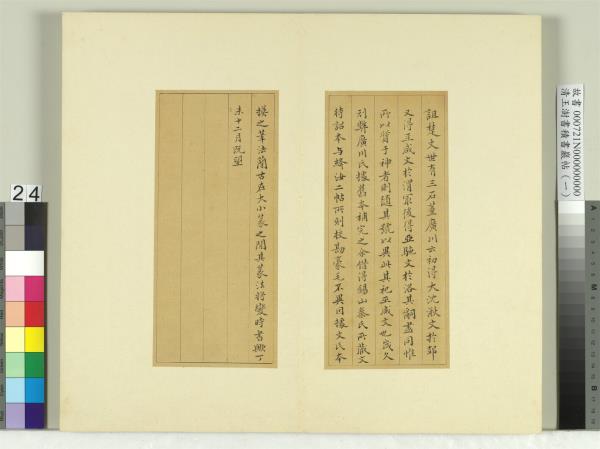 詛楚文世有三石董廣川云初得大沈湫文於郊
又得巫咸文於渭最後得亞駞文於洛其詞盡同惟
所以質于神者則隨其號以異此其祀巫咸文也歲久
刓弊廣川氏據舊本補完之余借得錫山秦氏所藏文
待詔本与絳汝二帖所刻校勘豪毛不異因據文氏本
摸之筆法簡古在大小篆之間其篆法将變時書歟丁
未十二月既望
清王澍書積書巖帖（一）
24